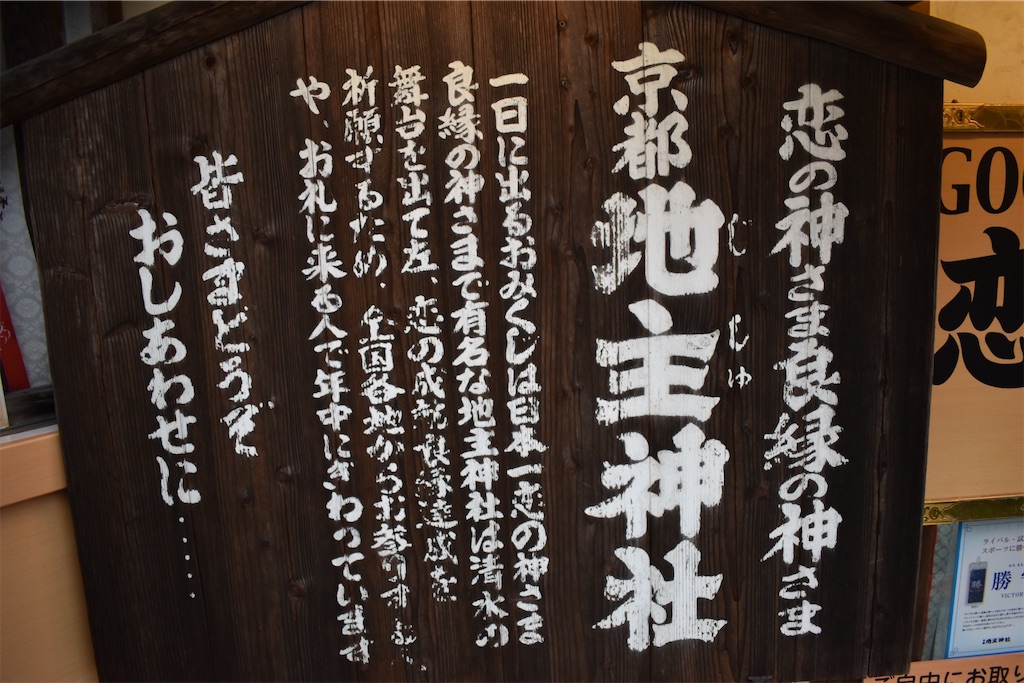 恋の神さま良縁の神さま
京都地主神社
じしゅ
一日に出るおみくじは日本一恋の神さま
良縁の神さまで有名な地主神社は清水の
舞台を出て左、恋の成就良縁達成を
祈願するため、全国各地からお参りする
や、お札に来る人で年中にぎわっています
皆さまどうぞ
おしあわせに……
GO
恋
ライバル・試
スポーツに勝
勝
VICTOR
地主神社
ご自由にお取り